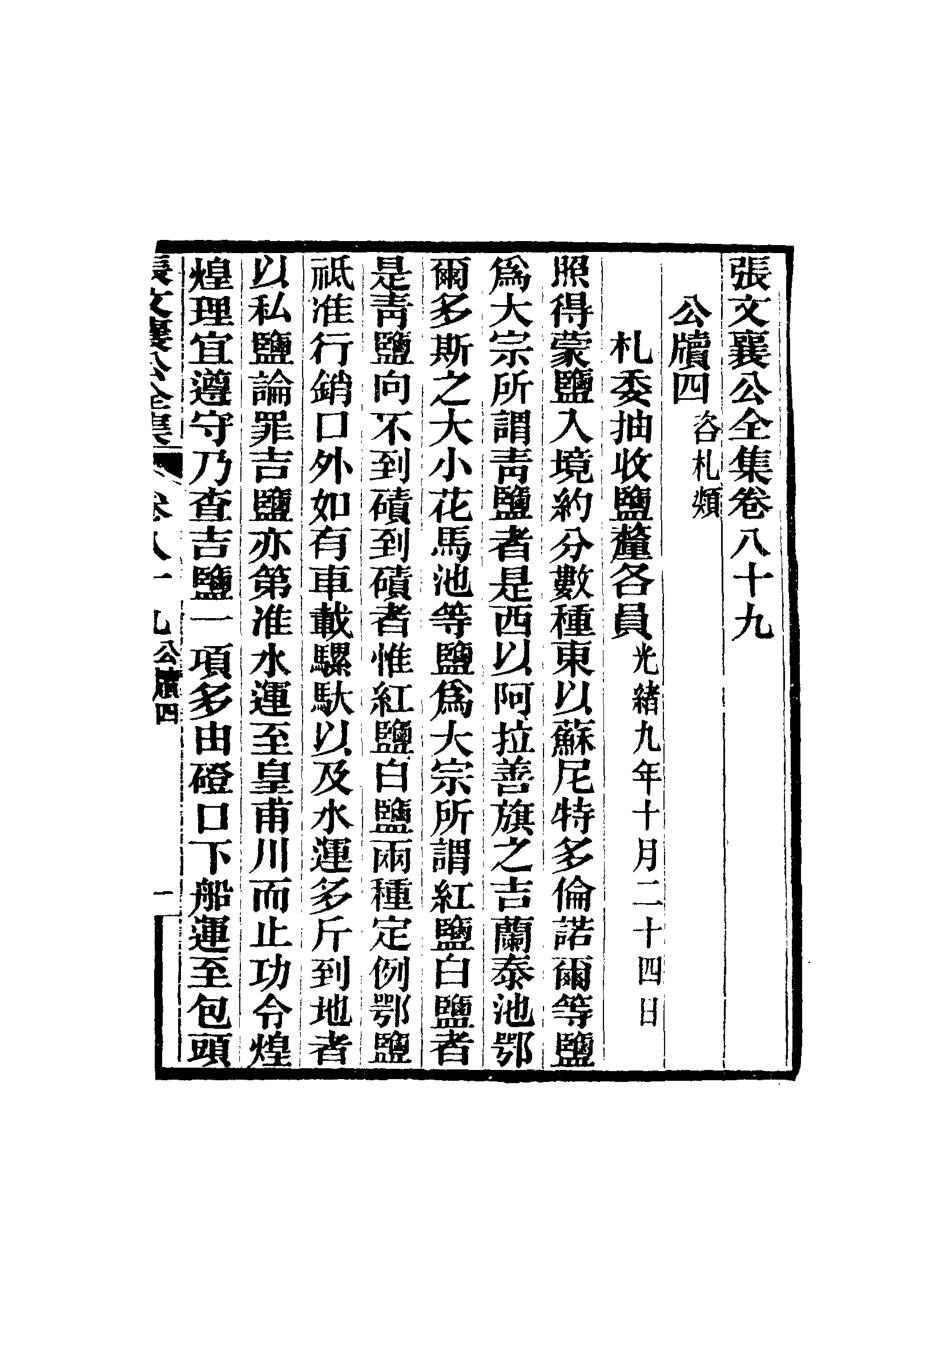 張文襄公全集卷八十九
公牘四咨札類
札委抽收鹽釐各員光緒九年十月二十四日
照得蒙鹽入境約分數種東以蘇尼特多倫諾爾等鹽
爲大宗所謂青鹽者是西以阿拉善旗之吉蘭泰池鄂
爾多斯之大小花馬池等鹽爲大宗所謂紅鹽白鹽者
是青鹽向不到磧到磧者惟紅鹽白鹽兩種定例鄂鹽
祇准行銷口外如有車載騾馱以及水運多斤到地者
以私鹽論罪吉鹽亦第准水運至皇甫川而止功令煌
煌理宜遵守乃查吉鹽一項多由磴口下船運至包頭
張文襄公全集 卷八十九公牘四 一